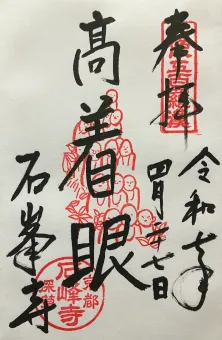 奉拝
令和七年
四月二十七日
高着眼
石峯寺
京都
深草
石峰寺